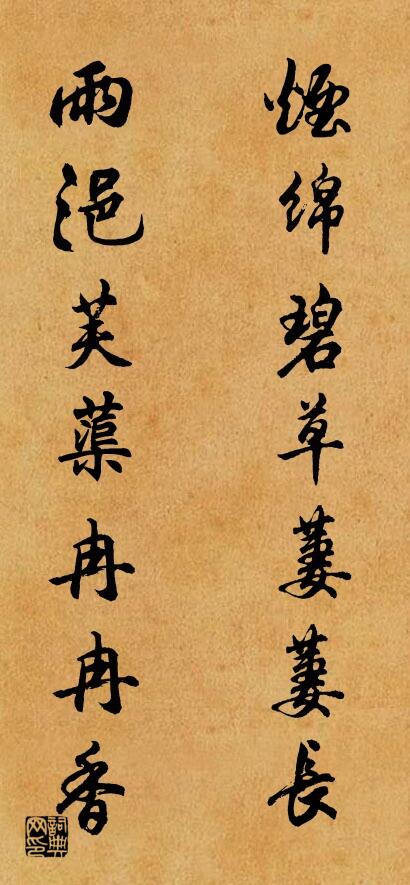 煙綿碧草萋萋長
雨浥芙蕖冉冉香
詞典网印